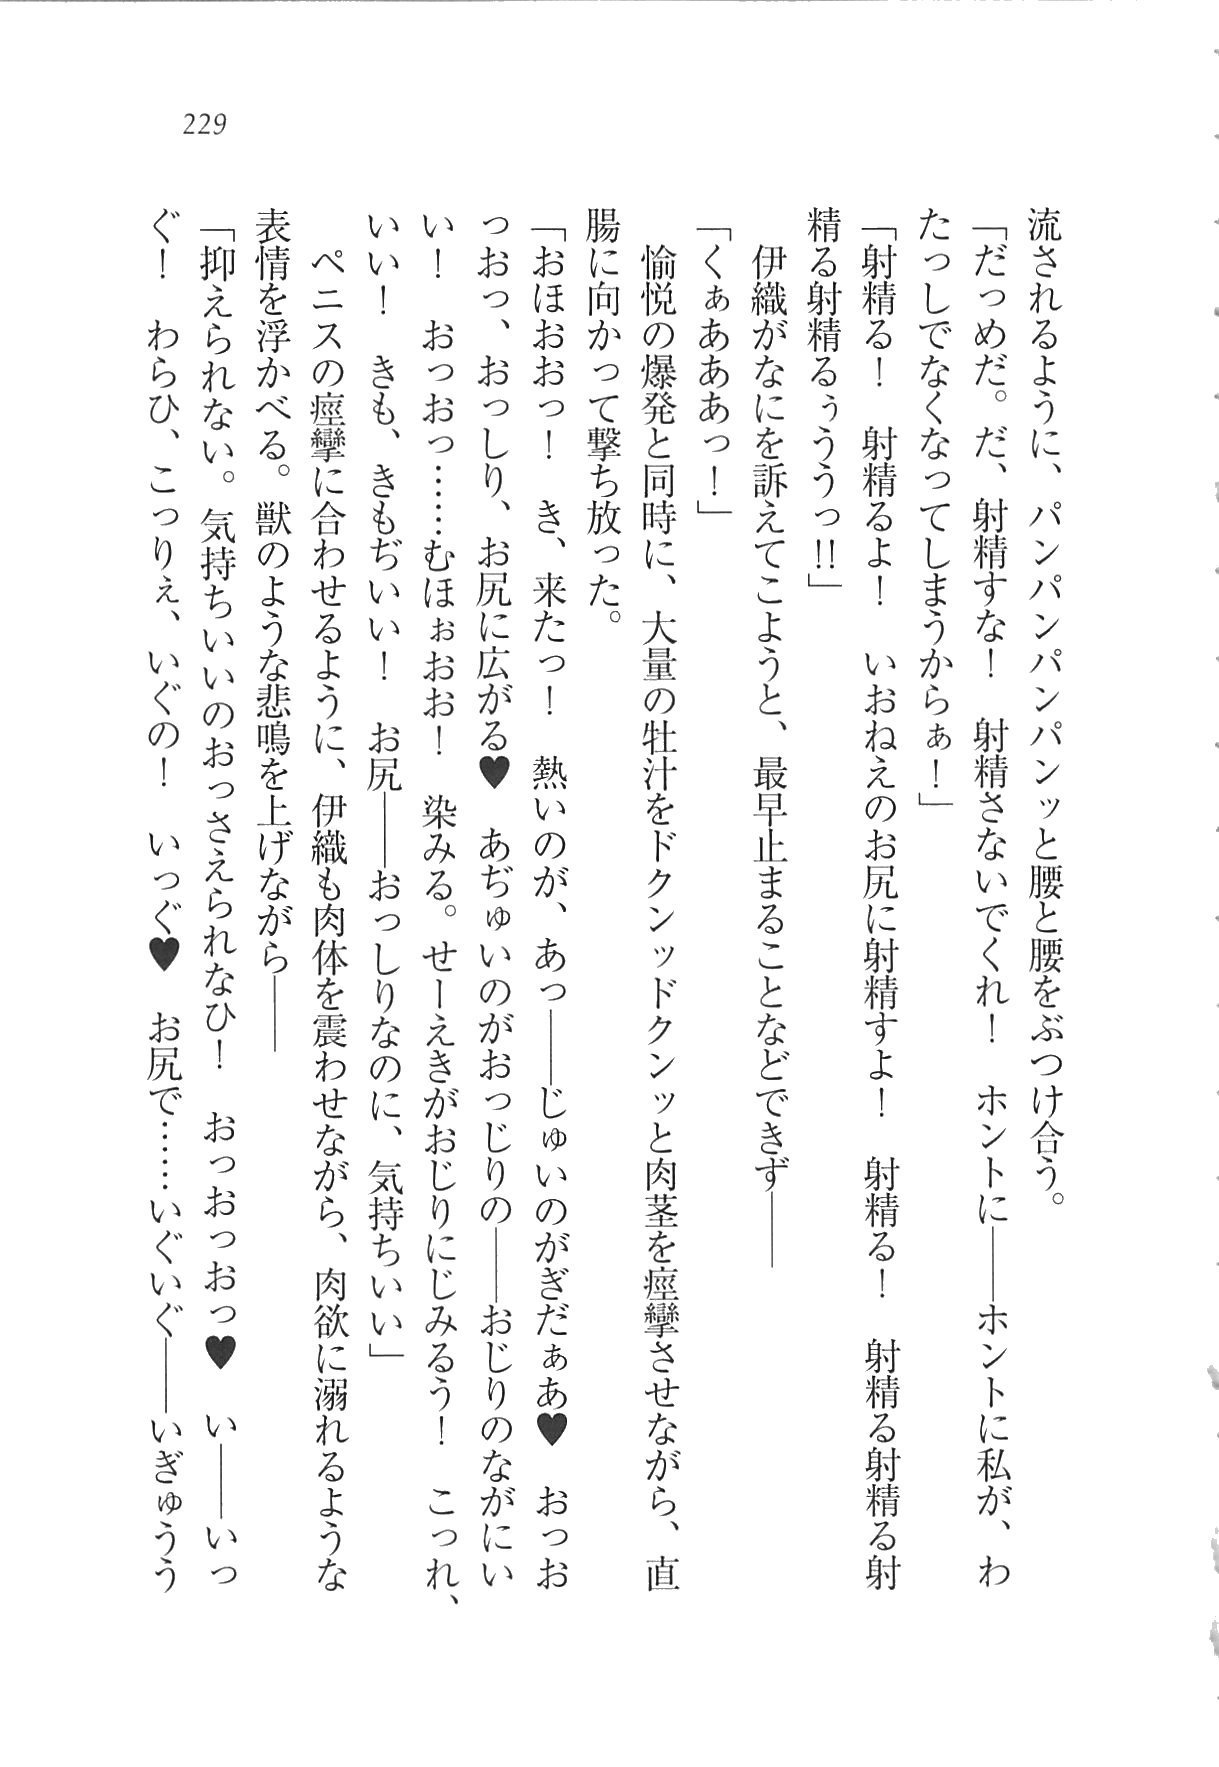 229
流されるように、パンパンパンパンッと腰と腰をぶつけ合う。
「だっめだ。だ、射精すな！　射精さないでくれ！　ホントに――ホントに私が、わ
たっしでなくなってしまうからぁ！」
「射精る！　射精るよ！　いおねえのお尻に射精すよ！　射精る！　射精る射精る射
精る射精るぅううっ!!」
　伊織がなにを訴えてこようと、最早止まることなどできず――
「くぁあああっ！」
　愉悦の爆発と同時に、大量の牡汁をドクンッドクンッと肉茎を痙攣させながら、直
腸に向かって撃ち放った。
「おほおおっ！　き、来たっ！　熱いのが、あっ――じゅいのがぎだぁあ♥　おっお
っおっ、おっしり、お尻に広がる♥　あぢゅいのがおっじりの――おじりのながにい
い！　おっおっ……むほぉおお！　染みる。せーえきがおじりにじみるう！　こっれ、
いい！　きも、きもぢいい！　お尻――おっしりなのに、気持ちいい」
　ペニスの痙攣に合わせるように、伊織も肉体を震わせながら、肉欲に溺れるような
表情を浮かべる。獣のような悲鳴を上げながら――
「抑えられない。気持ちいいのおっさえられなひ！　おっおっおっ♥　い――いっ
ぐ！　わらひ、こっりぇ、いぐの！　いっぐ♥　お尻で……いぐいぐ――いぎゅうう